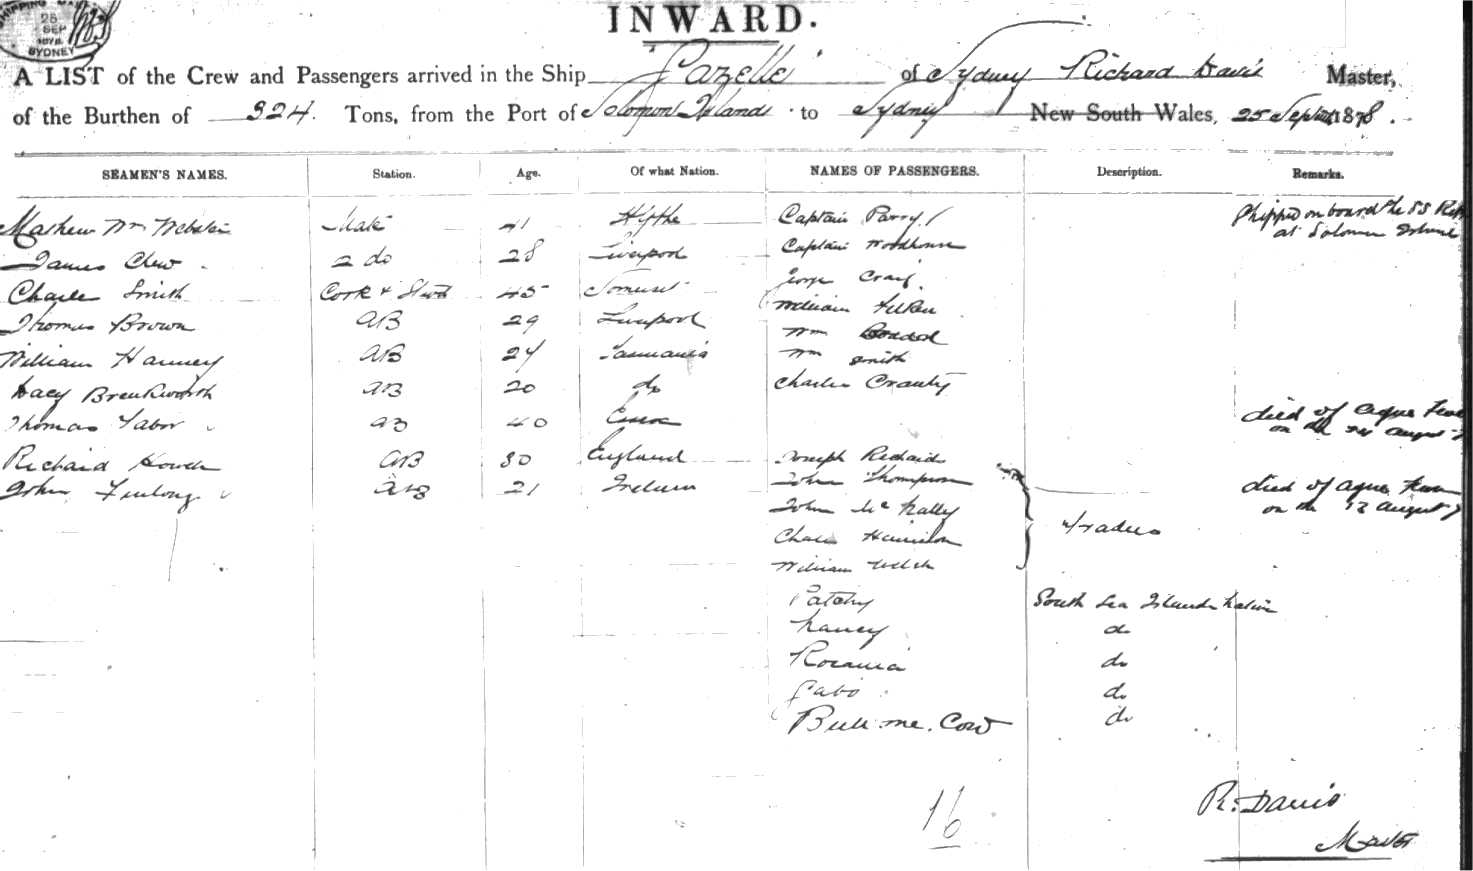 SHIPPING
25
SEP
1878
SYDNEY
INWARD.
A LIST of the Crew and Passengers arrived in the Ship Gazelle of Sydney Richard Davis Master,
of the Burthen of 324. Tons, from the Port of Solomon Islands to Sydney New South Wales, 25 Sept 1878.
SEAMEN'S NAMES. Station. Age. Of what Nation. NAMES OF PASSENGERS. Description. Remarks.
Mathew Wm Webster Mate 41 Hythe Captain Parry Shipped on board the SS
at Solomon
James Chew 2 do 28 Liverpool Captain Woodhouse
Charles Smith Cook & Stwd 45 Somerset George Craig
Thomas Brown AB 29 Liverpool William Aitken
William Hanney AB 24 Tasmania Wm
Wm Smith
AB 20 do Charles
Thomas Tabor AB 40 Essex died of ague fever
on the August
Richard AB 30 England Joseph Richards
John Furlong AB 21 John Thompson died of ague fever
on the 12 August
John McNally traders
Charles
William Welsh
Patchy South Sea Islands native
Nancy do
Rocania do
Gabo do
Bull me. Cow do
16
R. Davis
Master